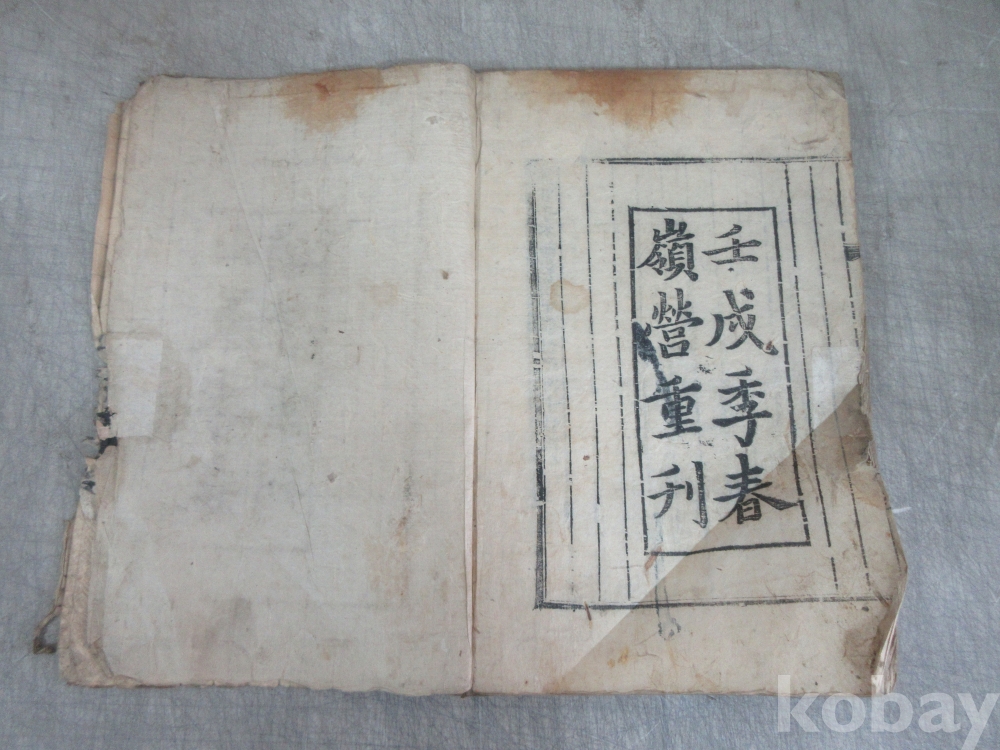 壬戌季春
嶺營重刊
kobay